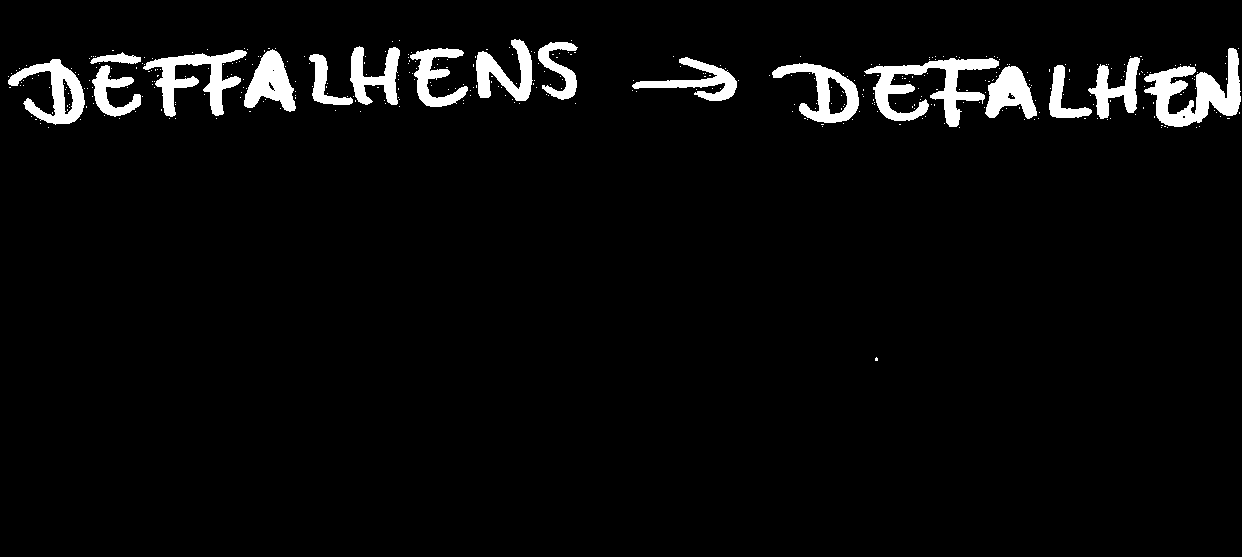 DEFFALHENS → DEFALHEN